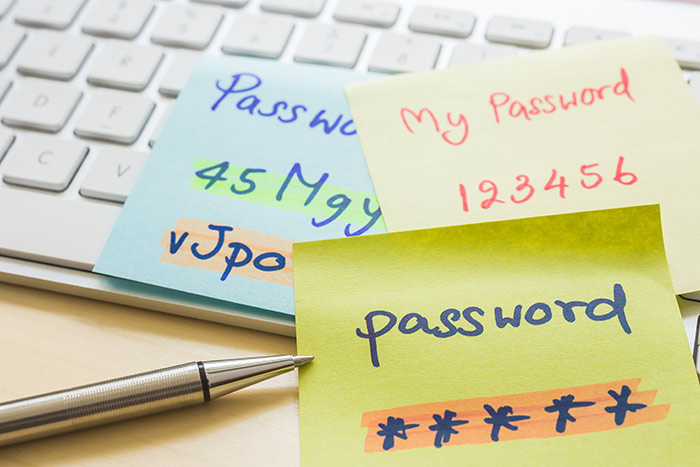 Passwo
45Mgy
vJpo
My Password
123456
password
*****
D
F
C
V